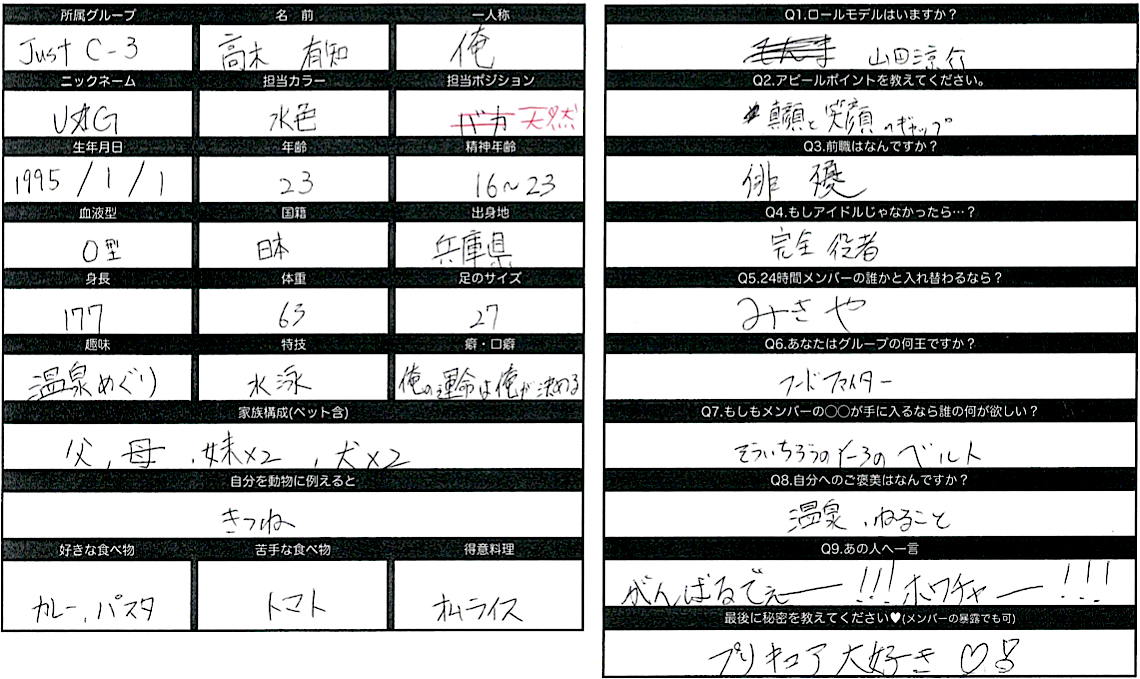 所属グループ 名前 一人称
Just C-3 高木 有知 俺
ニックネーム 担当カラー 担当ポジション
水色 バカ 天然
生年月日 年齢 精神年齢
1995/1/1 23 16~23
血液型 国籍 出身地
O型 日本 兵庫県
身長 体重 足のサイズ
177 63 27
趣味 特技 癖・口癖
温泉めぐり 水泳 俺の運命は俺が決める
家族構成(ペット含)
父,母,妹×2,犬×2
自分を動物に例えると
きつね
好きな食べ物 苦手な食べ物 得意料理
カレー,パスタ トマト オムライス
Q1.ロールモデルはいますか?
山田涼介
Q2.アピールポイントを教えてください。
真顔と笑顔のギャップ
Q3.前職はなんですか?
俳優
Q4.もしアイドルじゃなかったら…?
完全役者
Q5.24時間メンバーの誰かと入れ替わるなら?
みさや
Q6.あなたはグループの何王ですか?
フードファイター
Q7.もしもメンバーの○○が手に入るなら誰の何が欲しい?
そういちろうの ベルト
Q8.自分へのご褒美はなんですか?
温泉,ねること
Q9.あの人へ一言
がんばるでぇー!!!ホワチャー!!!
最後に秘密を教えてください♥(メンバーの暴露でも可)
プリキュア大好き♡